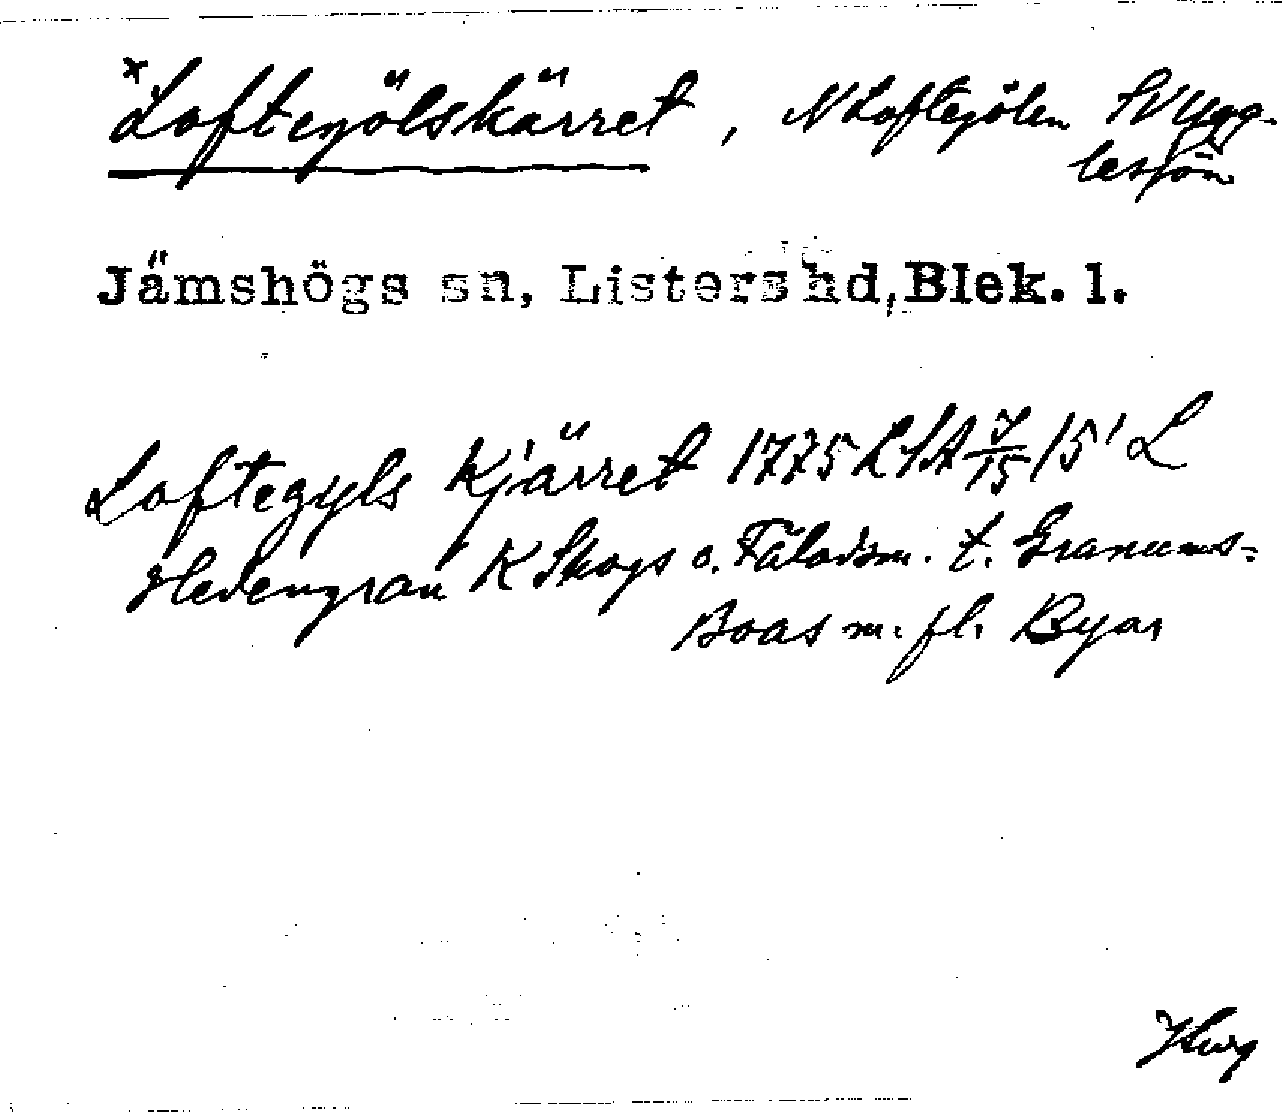 *Loftegölskärret, N Loftegölen SV Ugg-
lesjön
Jämshögs sn, Listers hd, Blek. l.
Loftegyls Kjärret 1775 LSA J/15 15' L
Hedengran K Skogs o. Fäladsm. t. Granums-
Boas m. fl. Byar